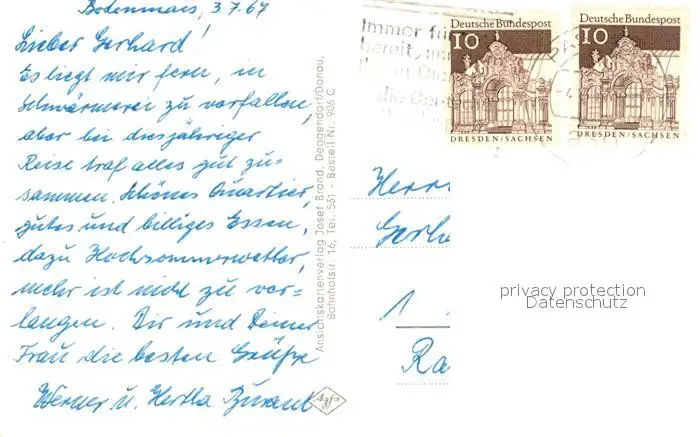 Bodenmais, 3.7.67
Lieber Gerhard!
Es liegt mir fern, in
Schwärmerei zu verfallen,
aber bei diesjähriger
Reise traf alles gut zu=
sammen. Schönes Quartier,
gutes und billiges Essen,
dazu Hochsommerwetter,
mehr ist nicht zu ver=
langen. Dir und Deiner
Frau die besten Grüße
Werner u. Hertha
Ansichtskartenverlag Josef Brand, Deggendorf/Donau,
Bahnhofstr. 16, Tel. 531 - Bestell Nr. 906 C
Agfa
Immer
bereit,
Deutsche Bundespost
10
DRESDEN/SACHSEN
Deutsche Bundespost
10
DRESDEN/SACHSEN
Herrn
Gerh
1
Ra
privacy protection
Datenschutz